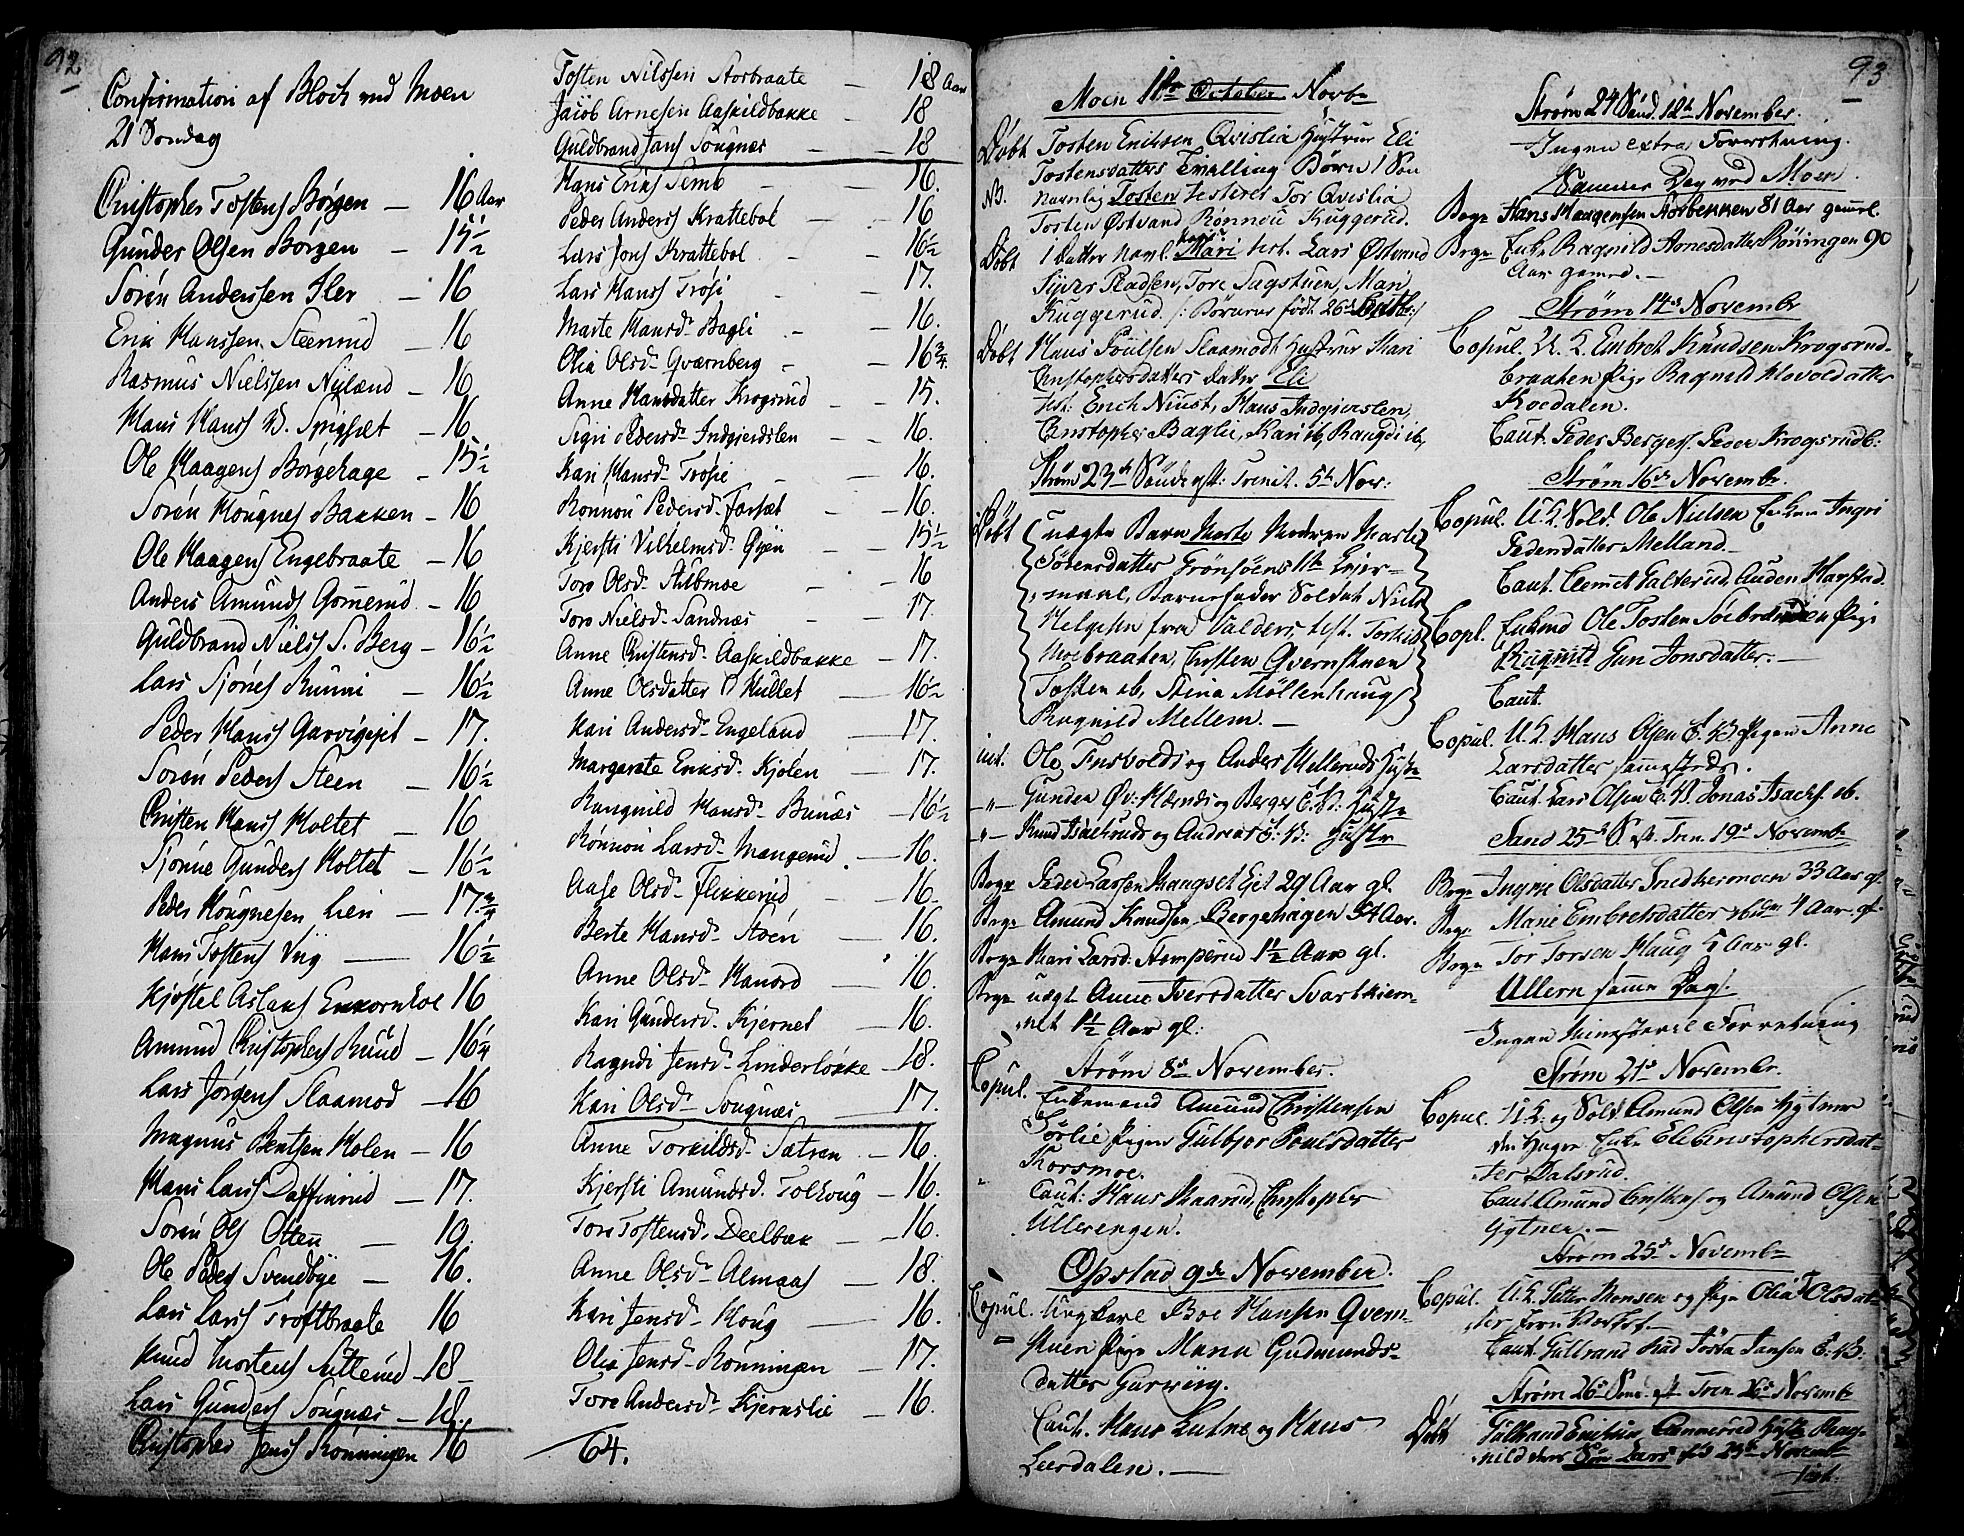 92
Confirmation af Bloch ved Moen
21 Sondag
Christopher Tostens Børgen — 16 Aar
Gunder Olsen Børgen — 15 1/2
Sorén Anderssen Iler — 16
Erik Hanssen Steenrud — 16
Rasmus Nielssen Nyland — 16
Hans Hans B. Spigset — 16
Ole Haagens Børgehage — 15 1/2
Sorén Hougnes Bakken — 16
Ole Haagens Engebraate — 16
Anders Amunds Gomerud — 16
Guldbrand Niels S. Berg — 16 1/2
Lars Sjønes Runni — 16 1/2
Peder Hans — 17.
Sorén Peders Steen — 16 1/2
Christen Hans Holtet — 16
Sjønne Gunders Holtet — 16 1/2
Peder Hougnesen Lien — 17 3/4
Hans Tostens Viig — 16 1/2
Kjøstel Aslaks 16
Amund Christophers Ruud — 16 1/4
Lars Jørgens Slaamod — 16
Magnus Bentsen Holen — 16
Hans Lars — 17.
Sorén Ols Otten — 19.
Ole Peders Svendbye — 16.
Lars Lars Troftbraate 16
Knud Mortens — 18
Lars Gunders Songnæs — 18.
Christopher Jens Rønningen 16
Tosten Nilssen Storbraate — 18 Aar
Jacob Arnesen Aaskildbakke — 18
Guldbrand Jans Songnæs — 18
Hans Eriks Semb — 16.
Peder Anders Krattebøl — 16
Lars Jons Krattebøl — 16 1/2
Lars Hans Trøsi — 17.
Marte Hansd. Bagli — 16.
Olia Olsd. Qværnberg — 16 3/4
Anne Hansdatter Krogsrud — 15.
Sigri Pedersd. Indgierdslen — 16.
Kari Hansd. Trøsie — 16.
Rønnou Pedersd. Farset — 16.
Kjersti Vilhelmsd. — 15 1/2
Toro Olsd. Stubmoe — 16
Toro Nielsd. Sandnæs — 17.
Anne Christensd. Aaskildbakke — 17.
Anne Olsdatter Hullet — 16 1/2
Kari Andersd. Engeland — 17.
Margarete Eriksd. Kjølen — 17.
Rangnild Hansd. Bunæs — 16 1/2
Rønnou Larsd. Mangerud — 16.
Aase Olsd. Flikkerud — 16.
Berte Hansd. Støen — 16.
Anne Olsd. Hanord — 16.
Kari Gundersd. Kjernet — 16.
Ragndi Jensd. Linderløkke — 18.
Kari Olsd. Songnæs — 17.
Anne Torkildsd. Sætran — 16.
Kjersti Amundsd. Tolhoug — 16.
Toro Tostensd. Deelbæk — 16.
Anne Olsd. Almaas — 18.
Kari Jensd. Houg — 16.
Olia Jensd. Rønningen — 17.
Tore Andersd. Kjernslie — 16.
64.
93
Moen 1ste October Novb
Døbt Tosten Ericksen Qvislia Hustrue Eli
Tostensdatters Tvilling Børn 1 Søn
NB. navnlig Tosten testerer Tor Qvislia
Tosten Østvand Rønnou Kuggerud.
Døbt 1 datter navnl. Mari test. Lars Østvand
Siver Pladsen, Tore Sagstuen, Mari
Kuggerud. /: Børnene født 26de
Døbt Hans Poulsen Slaamodt Hustrue Kari
Christophersdatters datter Eli
test: Erich Niust, Hans Indgierslen,
Christopher Baglie, Kari ib, Rangdi ib,
Strøm 23de Sønd. eft: Trenit. 5te Nov:
Døbt uægte Barn Marte Moderen Marte
Sørensdatter Grønsøens 1te Leier-
maal, Barnefader Soldat Niels
Helgesen fra Valders, test. Torkild
Moebraaten, Christen Qvernstuen
Tosten ib, Stina Møllenhaug
Ragnild Mellem. —
int. Ole Fusvolds og Anders Mellerudds Hustr
— " — Gunder Øv: Hærnæs og Berger E. V: Hustr
" — Knud og Andreas E: V: Hustr
Begr Peder Larsen Haugset Eiet 29 Aar gl.
Begr Amund Knudsen Bergehagen 54 Aar.
Begr Mari Larsd: Stomperud 1 1/2 Aar gl.
Begr uægt. Anne Iversdatter Svartkiern-
net 1 1/2 Aar gl:
Strøm 8de November.
Copul. Enkemand Amund Christensen
Sørlie Pigen Gulbjør Poulsdatter
Thorsmoe.
Caut: Hans Skaarud, Christopher
Ullerengen.
Opstad 9de November.
Copul. Ungkarl Boe Hansen Qvern-
stuen Pige Maria Gudmunds-
datter Garviig.
Caut. Hans Lutne og Hans
Leerdalen. —
Strøm 24 Sønd. 12te November.
Ingen extra Forretning.
Samme Dag ved Moen.
Begr Hans Haagensen Storbekken 81 Aar gaml.
Begr Enke Ragnild Arnesdatter Røningen 90
Aar gamel. —
Strøm 14de Novembr
Copul. U. K. Embret Knudsen Krogsrud-
braaten Pige Ragnild Hovoldatter
Roedalen.
Caut. Peder Berges. Peder Krogsrudb:
Strøm 16de Novembr.
Copul. U. K. Sold. Ole Nielsen Enken Ingri
Pedersdatter Melland. —
Caut. Clemet Galterud, Auden Harstad.
Copl. Enkmd Ole Tosten Pige
Ragnild Gun Jonsdatter. —
Caut.
Copul. U. K. Hans Olsen E. V. Pigen Anne
Larsdatter sammesteds.
Caut. Lars Olsen E. V. Jonas Isachs. ib.
Sand 25de S. eft. Tren. 19de Novembr
Begr Ingrie Olsdatter Snedkermoen 33 Aar gl.
Begr Marie Embretsdatter ibidm 4 Aar gl.
Begr Tor Torsen Haug 5 Aar gl.
Ullern samme Dags.
Ingen Ministeriel Forretning
Strøm 21de Novembr.
Copul. U. K. og Sold. Amund Olsen Gytnee
Enke Eli Christophersdat-
ter Dalsrud.
Caut. Amund Christens og Amund Olsen
Gytnee. —
Strøm 25de Novembr
Copul. U. K. Petter Monsen og Pige Olia Olsdat-
ter
Caut. Gulbrand Jansen E. V.
Strøm 26de Sønd. eft Tren. 26de Novembr
Døbt Gulbrand Ericksen Hustr Rang-
nild deres Søn Lars fød 23de Novembr
test.